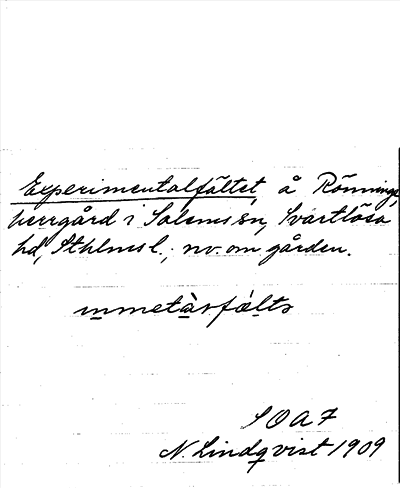 Experimentalfältet, å Rönninge,
herrgård i Salems sn, Svartlösa
hd, Sthlms l.; nv. om gården.
SOAF
N. Lindqvist 1909